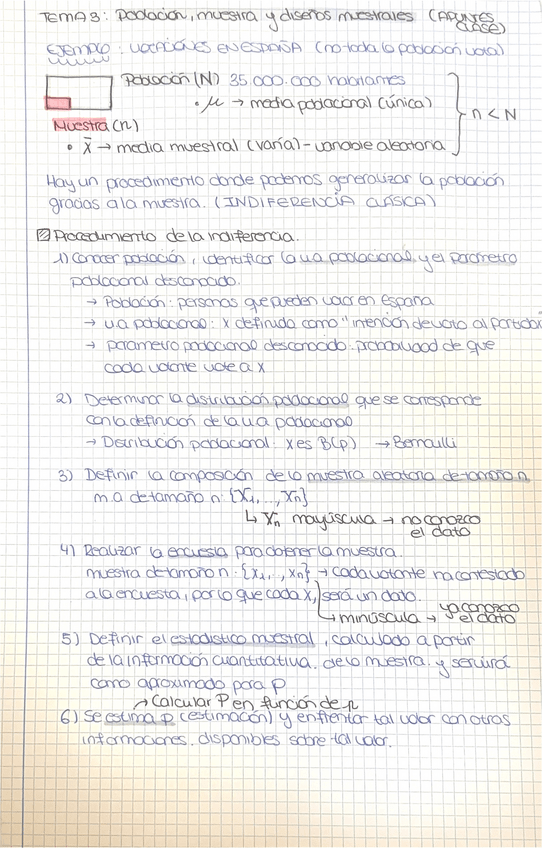 TEMA 3: Población, muestra y diseños muestrales (APUNTES CLASE)
EJEMPLO: VOTACIONES EN ESPAÑA (no toda la población vota)
Población (N) 35.000.000 habitantes
• μ → media poblacional (única)
n < N
Muestra (n)
• x̄ → media muestral (varía) - variable aleatoria
Hay un procedimiento donde podemos generalizar la población
gracias a la muestra. (INDIFERENCIA CLÁSICA)
Procedimiento de la indiferencia.
1) Conocer población, identificar la v.a poblacional y el parámetro
poblacional desconocido.
→ Población: personas que pueden votar en España
→ v.a poblacional: X definida como "intención de voto al partido x"
→ parámetro poblacional desconocido: probabilidad de que
cada votante vote a X
2) Determinar la distribución poblacional que se corresponde
con la definición de la v.a poblacional
→ Distribución poblacional: X es B(p) → Bernoulli
3) Definir la composición de la muestra aleatoria de tamaño n
m.a de tamaño n: {X1, ..., Xn}
↳ Xn mayúscula → no conozco
el dato
4) Realizar la encuesta para obtener la muestra.
muestra de tamaño n: {x1, .., xn} → cada votante ha contestado
a la encuesta, por lo que cada x, será un dato.
↳ minúscula → ya conozco
el dato
5) Definir el estadístico muestral, calculado a partir
de la información cuantitativa de la muestra y servirá
como aproximado para p
↗ Calcular P en función de n
6) Se estima p (estimación) y enfrentar tal valor con otras
informaciones disponibles sobre tal valor.